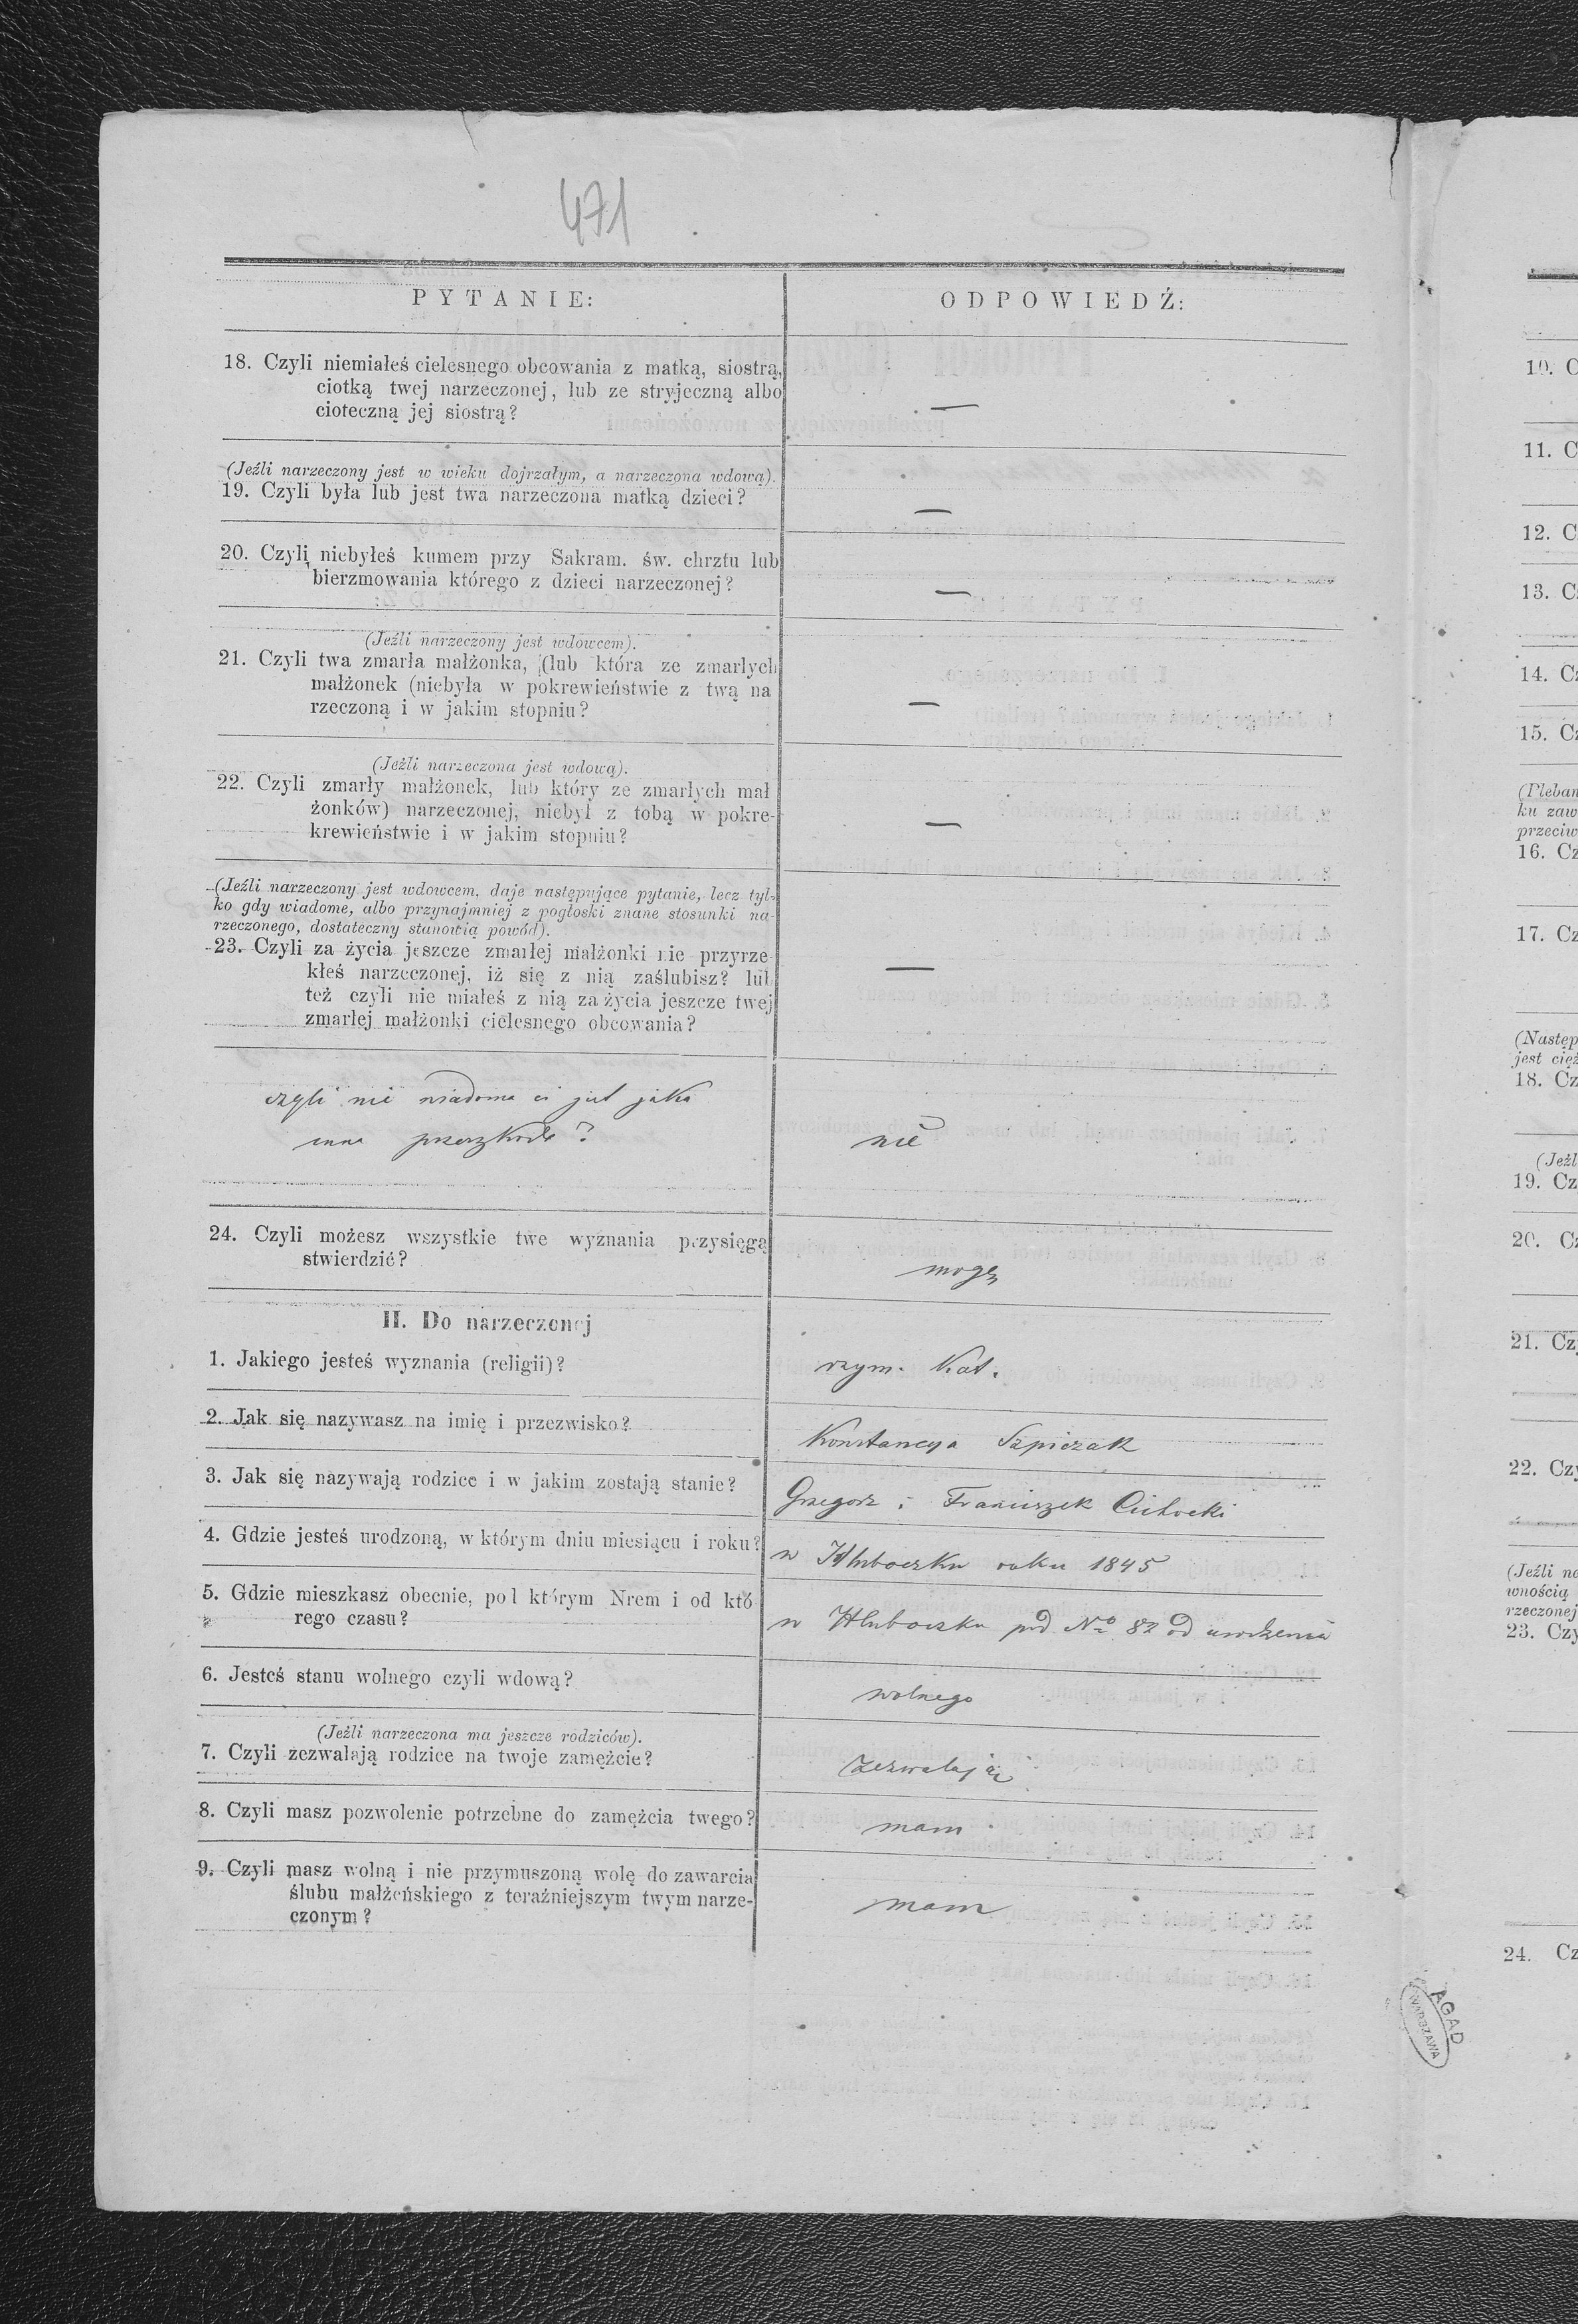 471
PYTANIE:
ODPOWIEDŹ:
18. Czyli niemiałeś cielesnego obcowania z matką, siostrą,
ciotką twej narzeczonej, lub ze stryjeczną albo
cioteczną jej siostrą?
—
(Jeźli narzeczony jest w wieku dojrzałym, a narzeczona wdową).
19. Czyli była lub jest twa narzeczona matką dzieci?
—
20. Czyli niebyłeś kumem przy Sakram. św. chrztu lub
bierzmowania którego z dzieci narzeczonej?
—
(Jeźli narzeczony jest wdowcem).
21. Czyli twa zmarła małżonka, (lub która ze zmarłych
małżonek (niebyła w pokrewieństwie z twą na
rzeczoną i w jakim stopniu?
—
(Jeźli narzeczona jest wdową).
22. Czyli zmarły małżonek, lub który ze zmarłych mał
żonków) narzeczonej, niebył z tobą w pokre-
krewieństwie i w jakim stopniu?
—
(Jeźli narzeczony jest wdowcem, daje następujące pytanie, lecz tyl-
ko gdy wiadome, albo przynajmniej z pogłoski znane stosunki na-
rzeczonego, dostateczny stanowią powód).
23. Czyli za życia jeszcze zmarłej małżonki nie przyrze-
kłeś narzeczonej, iż się z nią zaślubisz? lub
też czyli nie miałeś z nią za życia jeszcze twej
zmarłej małżonki cielesnego obcowania?
—
czyli nie wiadoma ci jest jaka
inna przeszkoda?
nie
24. Czyli możesz wszystkie twe wyznania przysięgą
stwierdzić?
mogę
II. Do narzeczonej
1. Jakiego jesteś wyznania (religii)?
rzym. Kat.
2. Jak się nazywasz na imię i przezwisko?
Konstancya Szpiczak
3. Jak się nazywają rodzice i w jakim zostają stanie?
Grzegorz i Franciszek Cichocki
4. Gdzie jesteś urodzoną, w którym dniu miesiącu i roku?
w Hłuboczku roku 1845
5. Gdzie mieszkasz obecnie, pod którym Nrem i od któ
rego czasu?
w Hłuboczku pod No 82 od urodzenia
6. Jesteś stanu wolnego czyli wdową?
wolnego
(Jeźli narzeczona ma jeszcze rodziców).
7. Czyli zezwalają rodzice na twoje zamężcie?
zezwalają
8. Czyli masz pozwolenie potrzebne do zamężcia twego?
mam
9. Czyli masz wolną i nie przymuszoną wolę do zawarcia
ślubu małżeńskiego z teraźniejszym twym narze-
czonym?
mam
10. C
11. C
12. C
13. C
14. Cz
15. Cz
(Pleban
ku zaw
przeciw
16. Cz
17. Cz
(Następ
jest cięż
18. Cz
(Jeźl
19. Cz
20. Cz
21. Czy
22. Czy
(Jeźli na
wnością
rzeczonej
23. Czy
24. Cz
AGAD
WARSZAWA